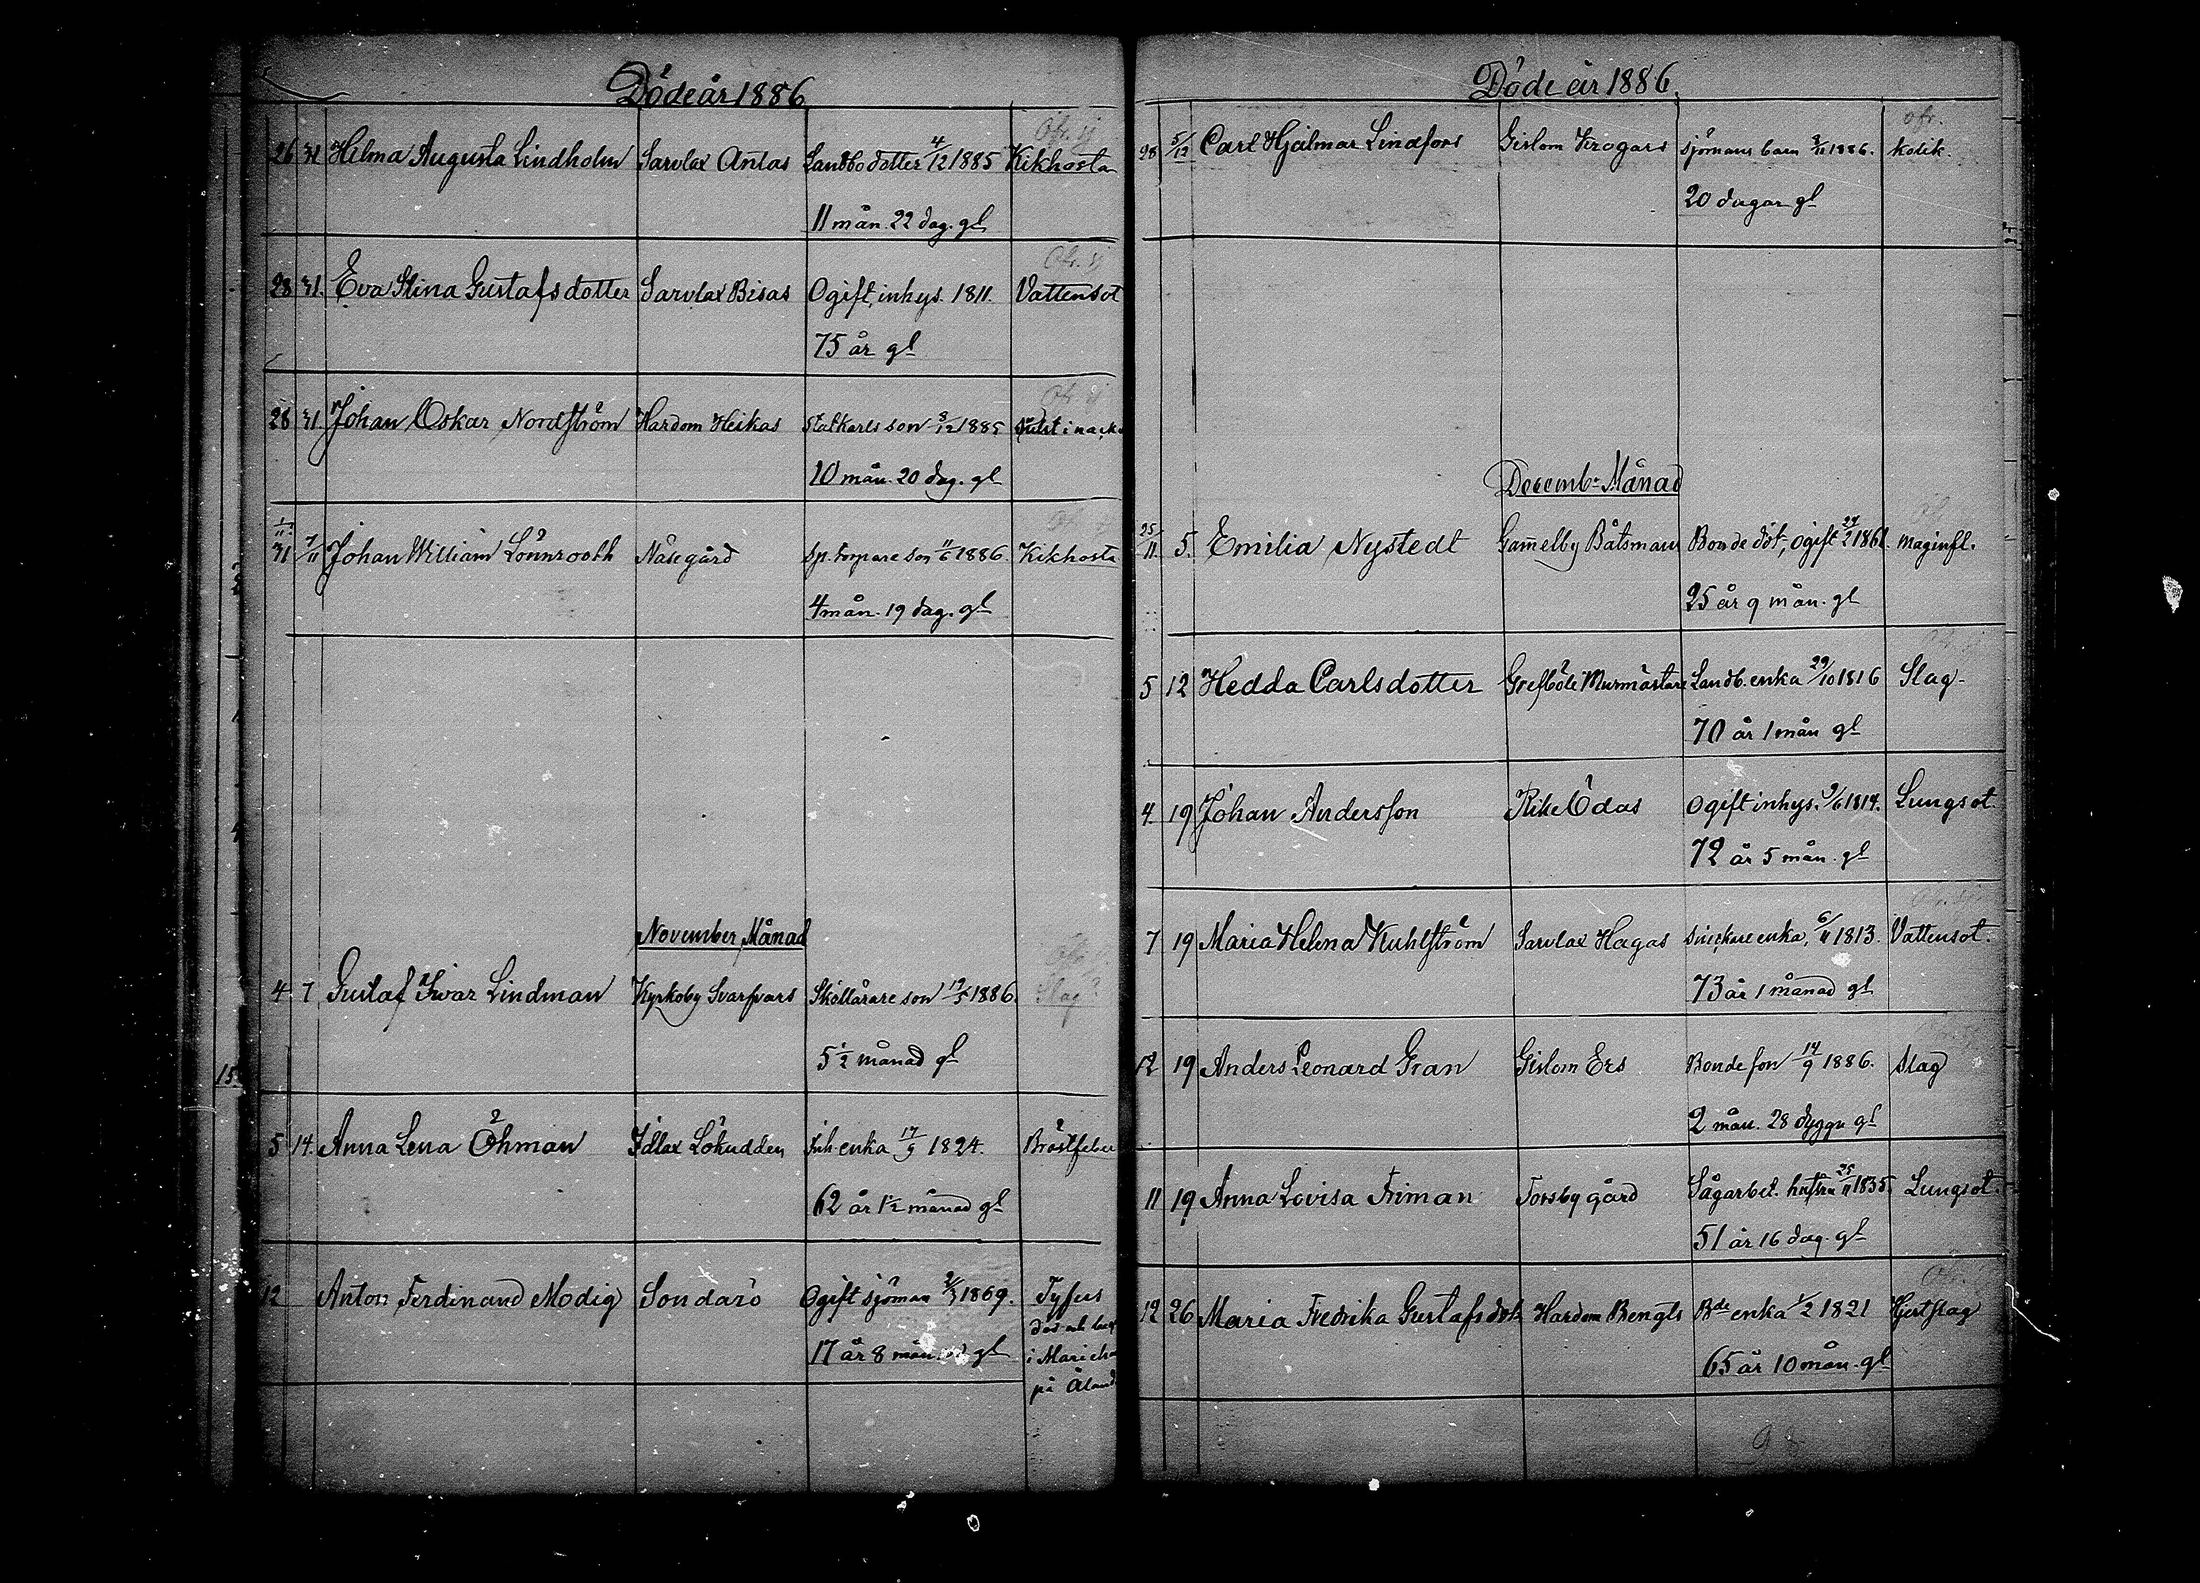 Döde år 1886
26 31 Hilma Augusta Lindholm Sarvlax Antas Landbodotter 4/12 1885 Kikhosta
11 mån. 22 dag. gl
28 31. Eva Stina Gustafsdotter Sarvlax Bisas Ogift, inhys. 1811. Vattensot
75 år gl
28 31 Johan Oskar Nordström Hardom Heikas Statkarls son 8/12 1885
10 mån. 20 dag. gl
1/11
31 7/11 Johan William Lönnrooth Näsegård Sp. torpare son 11/6 1886. Kikhosta
4 mån. 19 dag. gl
November Månad
4 7 Gustaf Ivar Lindman Kyrkoby Svarfvars Skollärare son 19/5 1886. Slag?
5 1/2 månad gl
5 14. Anna Lena Öhman Idlax Lökudden Inh. enka 17/9 1824. Bröstfeber
62 år 1 1/2 månad gl
12 Anton Ferdinand Modig Sondarö Ogift sjöman 2/3 1869. Tyfus
död och
17 år 8 månad gl i Marieha
på Åland
Döde år 1886
ofr.
28 5/12 Carl Hjalmar Lindfors Gislom Krogars sjömans barn 8/11 1886. kolik.
20 dagar gl
Decemb. Månad
25/11 5. Emilia Nystedt Gamelby Båtsmans Bonde dot, ogift 24/2 1861. maginfl.
25 år 9 mån. gl
5 12 Hedda Carlsdotter Grefböle Murmästare Landb. enka 29/10 1816 Slag
70 år 1 mån gl
4. 19 Johan Andersson Rike Ödas Ogift inhys. 9/6 1814. Lungsot.
72 år 5 mån. gl
7 19 Maria Helena Kuhlström Sarvlax Hagas Snickare enka, 6/11 1813. Vattensot.
73 år 1 månad gl
12 19 Anders Leonard Gran Gislom Ers Bonde son 14/9 1886. Slag
2 mån. 28 dygn gl
11 19 Anna Lovisa Friman Forsby gård Sågarbet. hustru 25/11 1835. Lungsot.
51 år 16 dag. gl
12 26 Maria Fredrika Gustafsdot. Hardom Bengts Bde enka 1/2 1821 Hjertslag
65 år 10 mån. gl